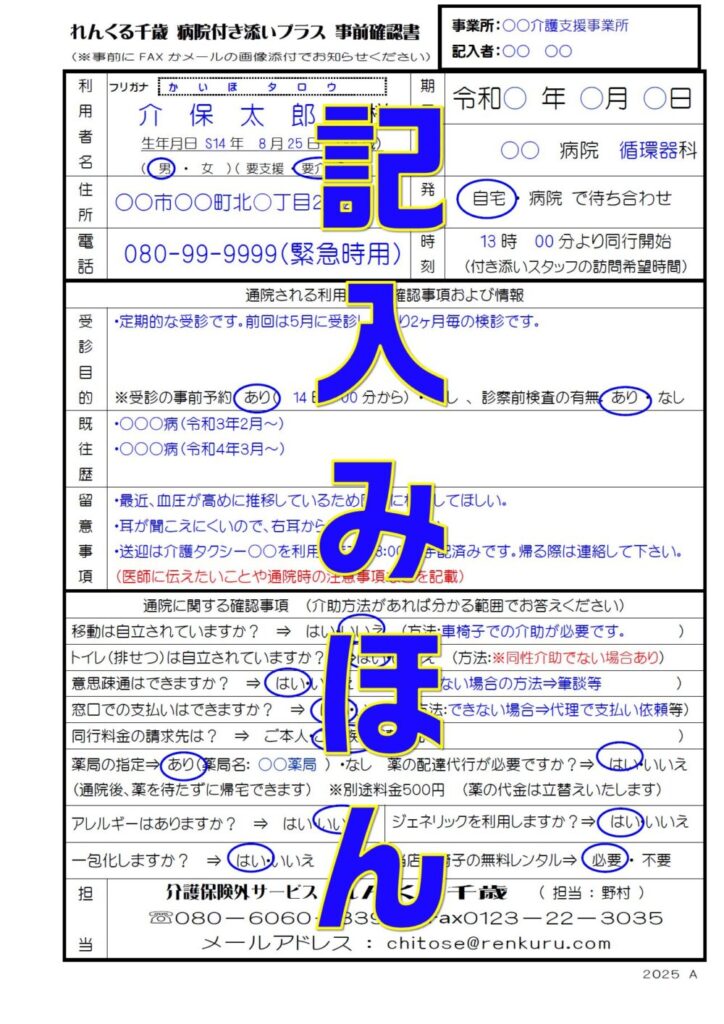 れんくる千歳 病院付き添いプラス 事前確認書
(※事前にFAXかメールの画像添付でお知らせください)
事業所:〇〇介護支援事業所
記入者:〇〇 〇〇
利用者名
フリガナ かいほタロウ
介保太郎
生年月日 S14年 8月25日
(男・女)(要支援・要介
期
令和〇年 〇月 〇日
〇〇 病院 循環器科
住所
〇〇市〇〇町北〇丁目2
発
自宅・病院 で待ち合わせ
電話
080-99-9999(緊急時用)
時刻
13時 00分より同行開始
(付き添いスタッフの訪問希望時間)
通院される利用 確認事項および情報
受診目的
・定期的な受診です。前回は5月に受診し 2ヶ月毎の検診です。
※受診の事前予約 あり( 14 00分から)・ し、診察前検査の有無 あり・なし
既往歴
・〇〇〇病(令和3年2月~)
・〇〇〇病(令和4年3月~)
留意事項
・最近、血圧が高めに推移しているため してほしい。
・耳が聞こえにくいので、右耳から
・送迎は介護タクシー〇〇を利用 8:00 手配済みです。帰る際は連絡して下さい。
(医師に伝えたいことや通院時の注意事項 を記載)
通院に関する確認事項 (介助方法があれば分かる範囲でお答えください)
移動は自立されていますか? ⇒ はい・いいえ (方法:車椅子での介助が必要です。 )
トイレ(排せつ)は自立されていますか? はい え (方法:※同性介助でない場合あり)
意思疎通はできますか? ⇒ はい・い ない場合の方法⇒筆談等 )
窓口での支払いはできますか? 方法:できない場合⇒代理で支払い依頼等)
同行料金の請求先は? ⇒ ご本人・ご 族 )
薬局の指定⇒ あり(薬局名: 〇〇薬局 )・なし 薬の配達代行が必要ですか?⇒ はい・いいえ
(通院後、薬を待たずに帰宅できます) ※別途料金500円 (薬の代金は立替えいたします)
アレルギーはありますか? ⇒ はい・いい
ジェネリックを利用しますか?⇒ はい・いいえ
一包化しますか? ⇒ はい・いいえ
当店 椅子の無料レンタル⇒ 必要・不要
担当
介護保険外サービス れんくる千歳 (担当:野村)
☏080-6060- 839 Fax0123-22-3035
メールアドレス : chitose@renkuru.com
2025 A
記入みほん